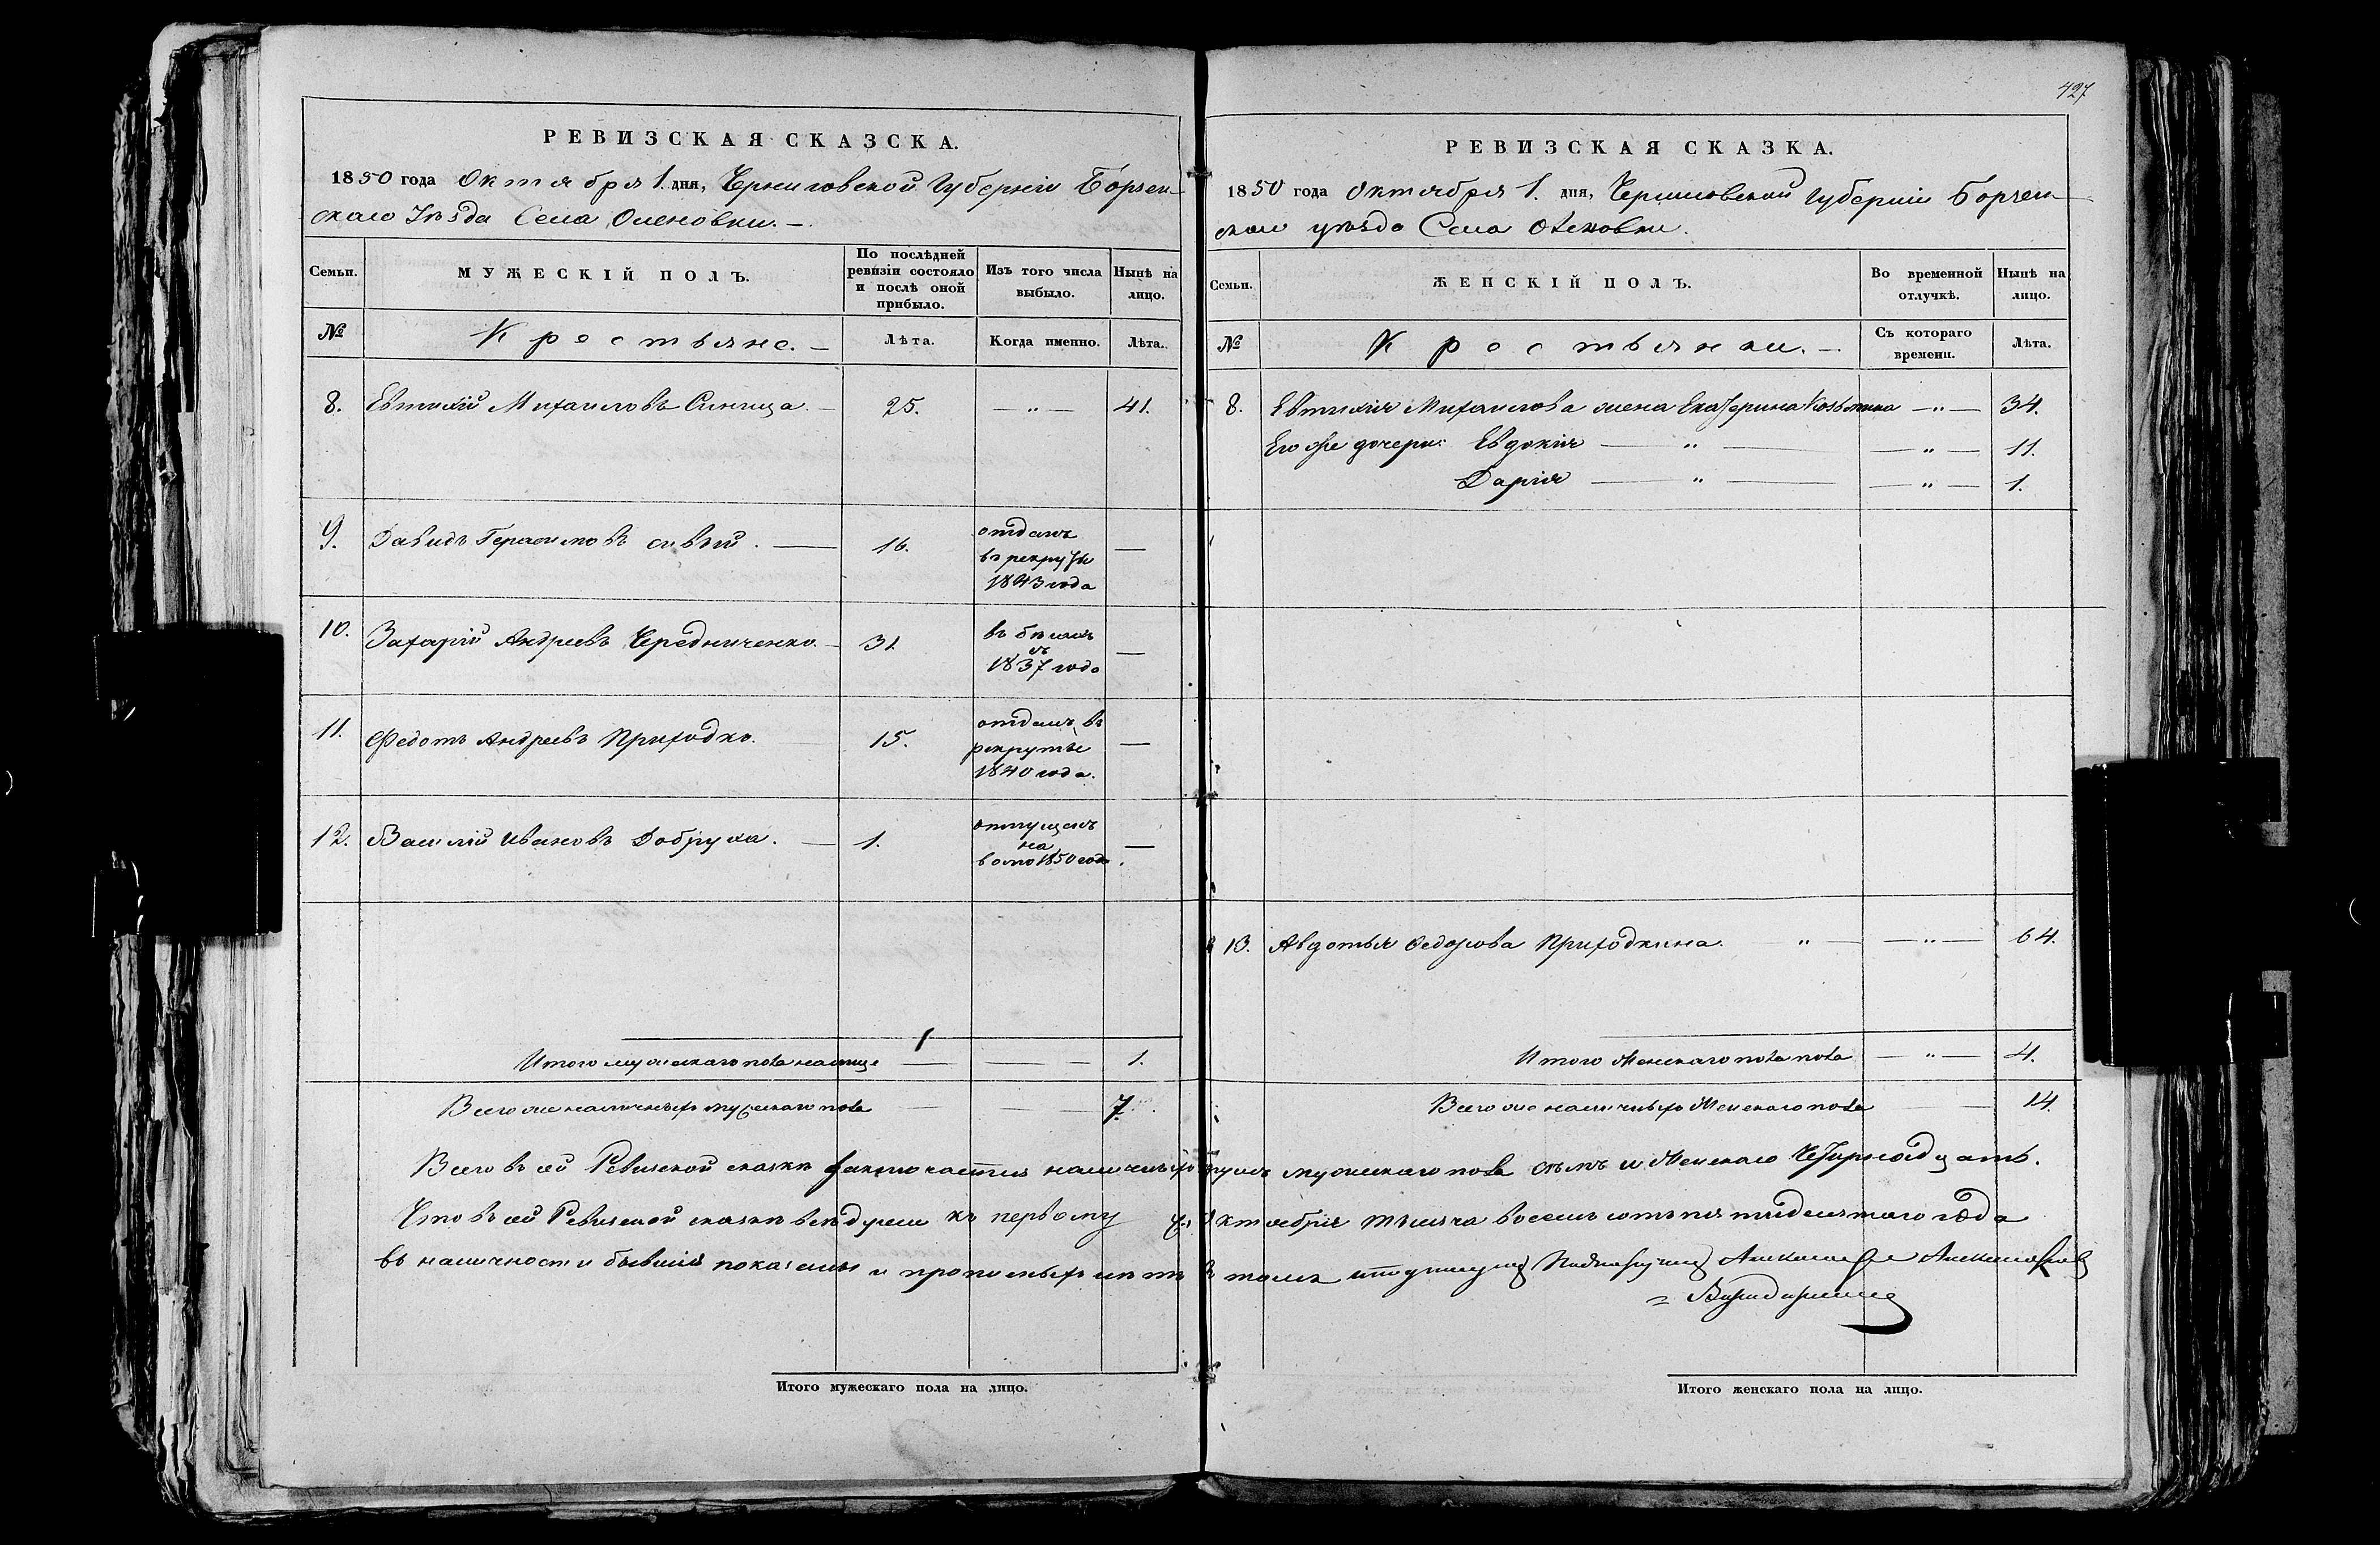 РЕВИЗСКАЯ СКАЗСКА.
1850 года Октября 1. дня, Черниговской Губерніи Борзен-
скаго Уѣзда Села Оленовки. —
Семьи.
МУЖЕСКІЙ ПОЛЪ.
По послѣдней ревизіи состояло и послѣ оной прибыло.
Изъ того числа выбыло.
Нынѣ на лицо.
№
Крестьяне. —
Лѣта.
Когда именно.
Лѣта.
8. Евтихій Михаиловъ Синица. — 25. — " — 41.
9. Давидъ Герасимовъ Сивый. — 16. отданъ —
въ рекруты
1843 года
10. Захарій Андреевъ Чередниченко. — 31. въ бѣгахъ —
съ
1837 года
11. Федотъ Андреевъ Приходко. 15. отданъ въ —
рекруты
1840 года.
12. Василій Ивановъ Добруха. — 1. отпущенъ —
на
волю 1850 года.
Итого мужескаго пола на лице — — 1.
Всего же наличныхъ мужескаго пола — — 7.
Итого мужескаго пола на лицо.
427
РЕВИЗСКАЯ СКАЗКА.
1850 года Октября 1. дня, Черниговской Губерніи Борзен-
скаго уѣзда Села Оленовки.
Семьи.
ЖЕНСКІЙ ПОЛЪ.
Во временной отлучкѣ.
Нынѣ на лицо.
№
Крестьянки. —
Съ котораго времени.
Лѣта.
8. Евтихія Михаилова жена Екатерина Козьмина — " — 34.
Его же дочери: Евдокія — " — — " — 11.
Дарія — " — — " — 1.
13. Авдотья Федорова Приходкина. " — — " — 64.
Итого Женскаго пола пола — " — 4.
Всего же наличныхъ Женскаго пола — 14.
Всего въ сей Ревизской сказкѣ заключается наличныхъ душъ мужескаго пола семь и Женскаго Четырнадцать.
Что въ сей Ревизской сказкѣ всѣ души къ первому Ч. Октября тысяча восемь сотъ пятидесятаго года
въ наличности бывшія показаны и прописныхъ нѣтъ въ томъ
Итого женскаго пола на лицо.